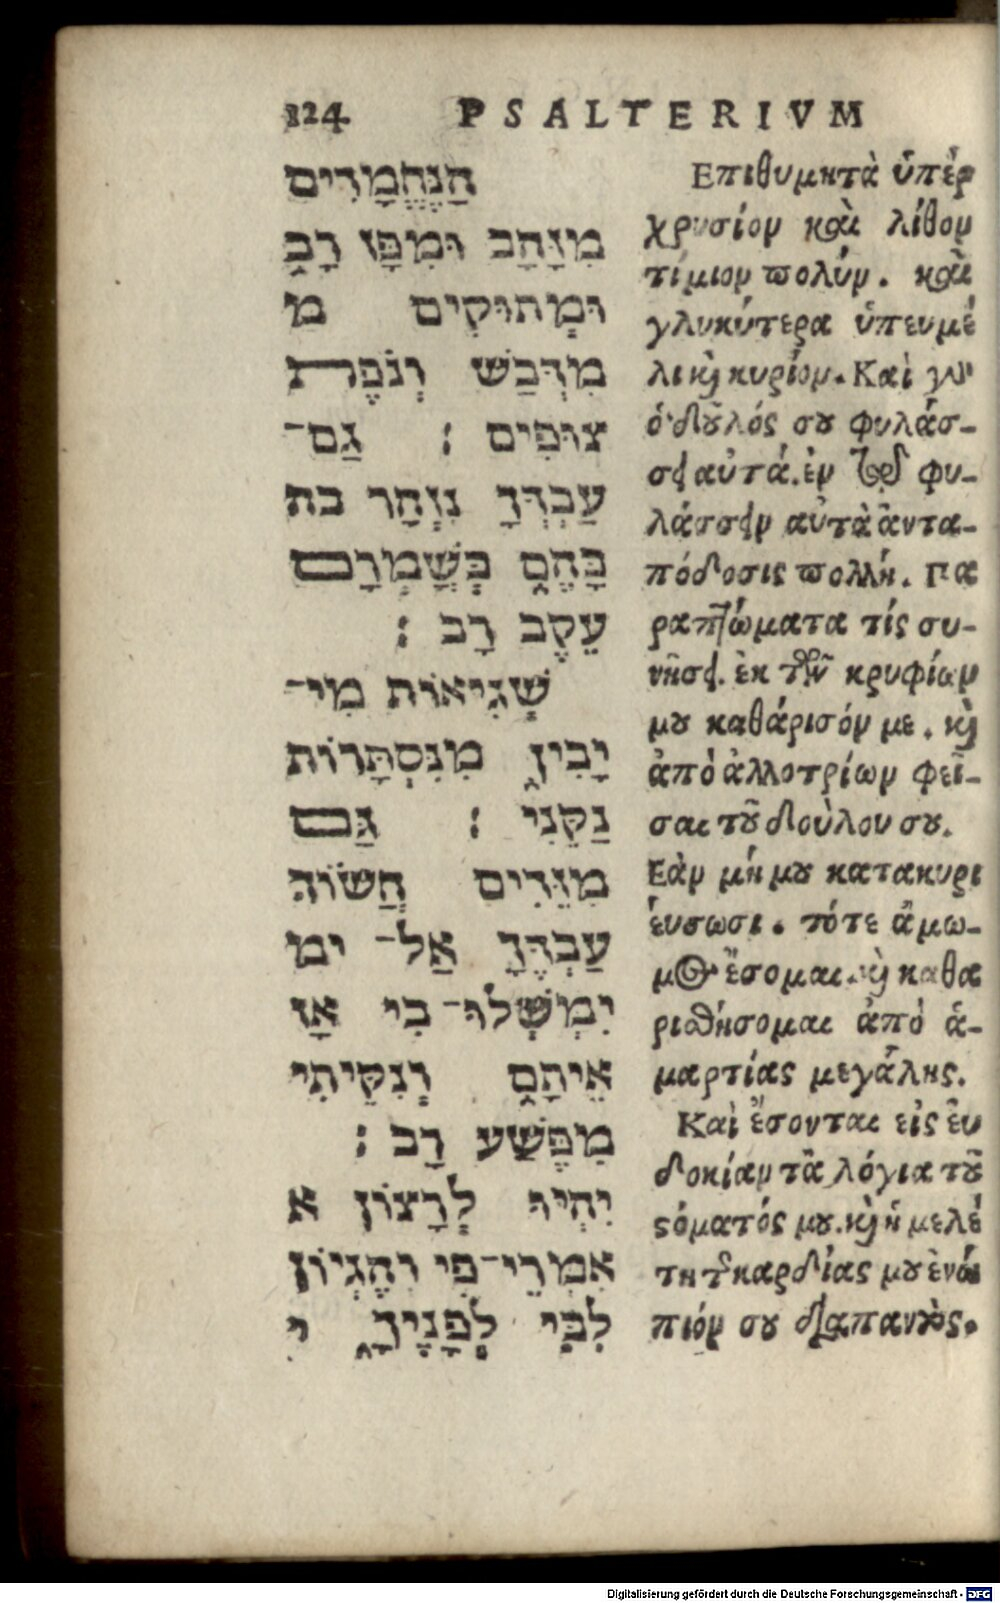 124 PSALTERIVM
הַנֶּחֱמָדִים
מִזָּהָב וּמִפַּז רָב֑
וּמְתוּקִים מ
מִדְּבַשׁ וְנֹפֶת
צוּפִים : גַּם־
עַבְדְּךָ נִזְהָר בה
בָּהֶם֑ בְּשָׁמְרָם
עֵקֶב רָב :
שְׁגִיאוֹת מִי־
יָבִין֑ מִנִּסְתָּרוֹת
נַקֵּנִי : גַּם
מִזֵּדִים חֲשׂוֹךְ
עַבְדֶּךָ אַל־ ימ
יִמְשְׁלוּ־ בִי אָז
אֵיתָם֑ וְנִקֵּיתִי
מִפֶּשַׁע רָב :
יִהְיוּ לְרָצוֹן א
אִמְרֵי־פִי וְהֶגְיוֹן
לִבִּי לְפָנֶיךָ֑ י
Επιθυμητὰ ὑπὲρ
χρυσίον καὶ λίθον
τίμιον πολύν. καὶ
γλυκύτερα ὑπευμέ
λι κὶ κυρίον. Καὶ γὰρ
ὁ δοῦλός σου φυλάσ-
σει αὐτά. ἐν τῷ φυ-
λάσσειν αὐτὰ ἀντα-
πόδοσις πολλή. Πα
ραπτώματα τίς συ-
νήσει. ἐκ τῶν κρυφίων
μου καθάρισόν με. καὶ
ἀπὸ ἀλλοτρίων φεῖ-
σαι τοῦ δούλου σου.
Εὰν μή μου κατακυρι
έυσωσι. τότε ἄμω-
μος ἔσομαι. καὶ καθα
ρισθήσομαι ἀπὸ ἁ-
μαρτίας μεγάλης.
Καὶ ἔσονται εἰς ἐυ
δοκίαν τὰ λόγια τοῦ
στόματός μου. καὶ ἡ μελέ
τη τῆς καρδίας μου ἐνώ
πιόν σου διαπαντός.
Digitalisierung gefördert durch die Deutsche Forschungsgemeinschaft - DFG